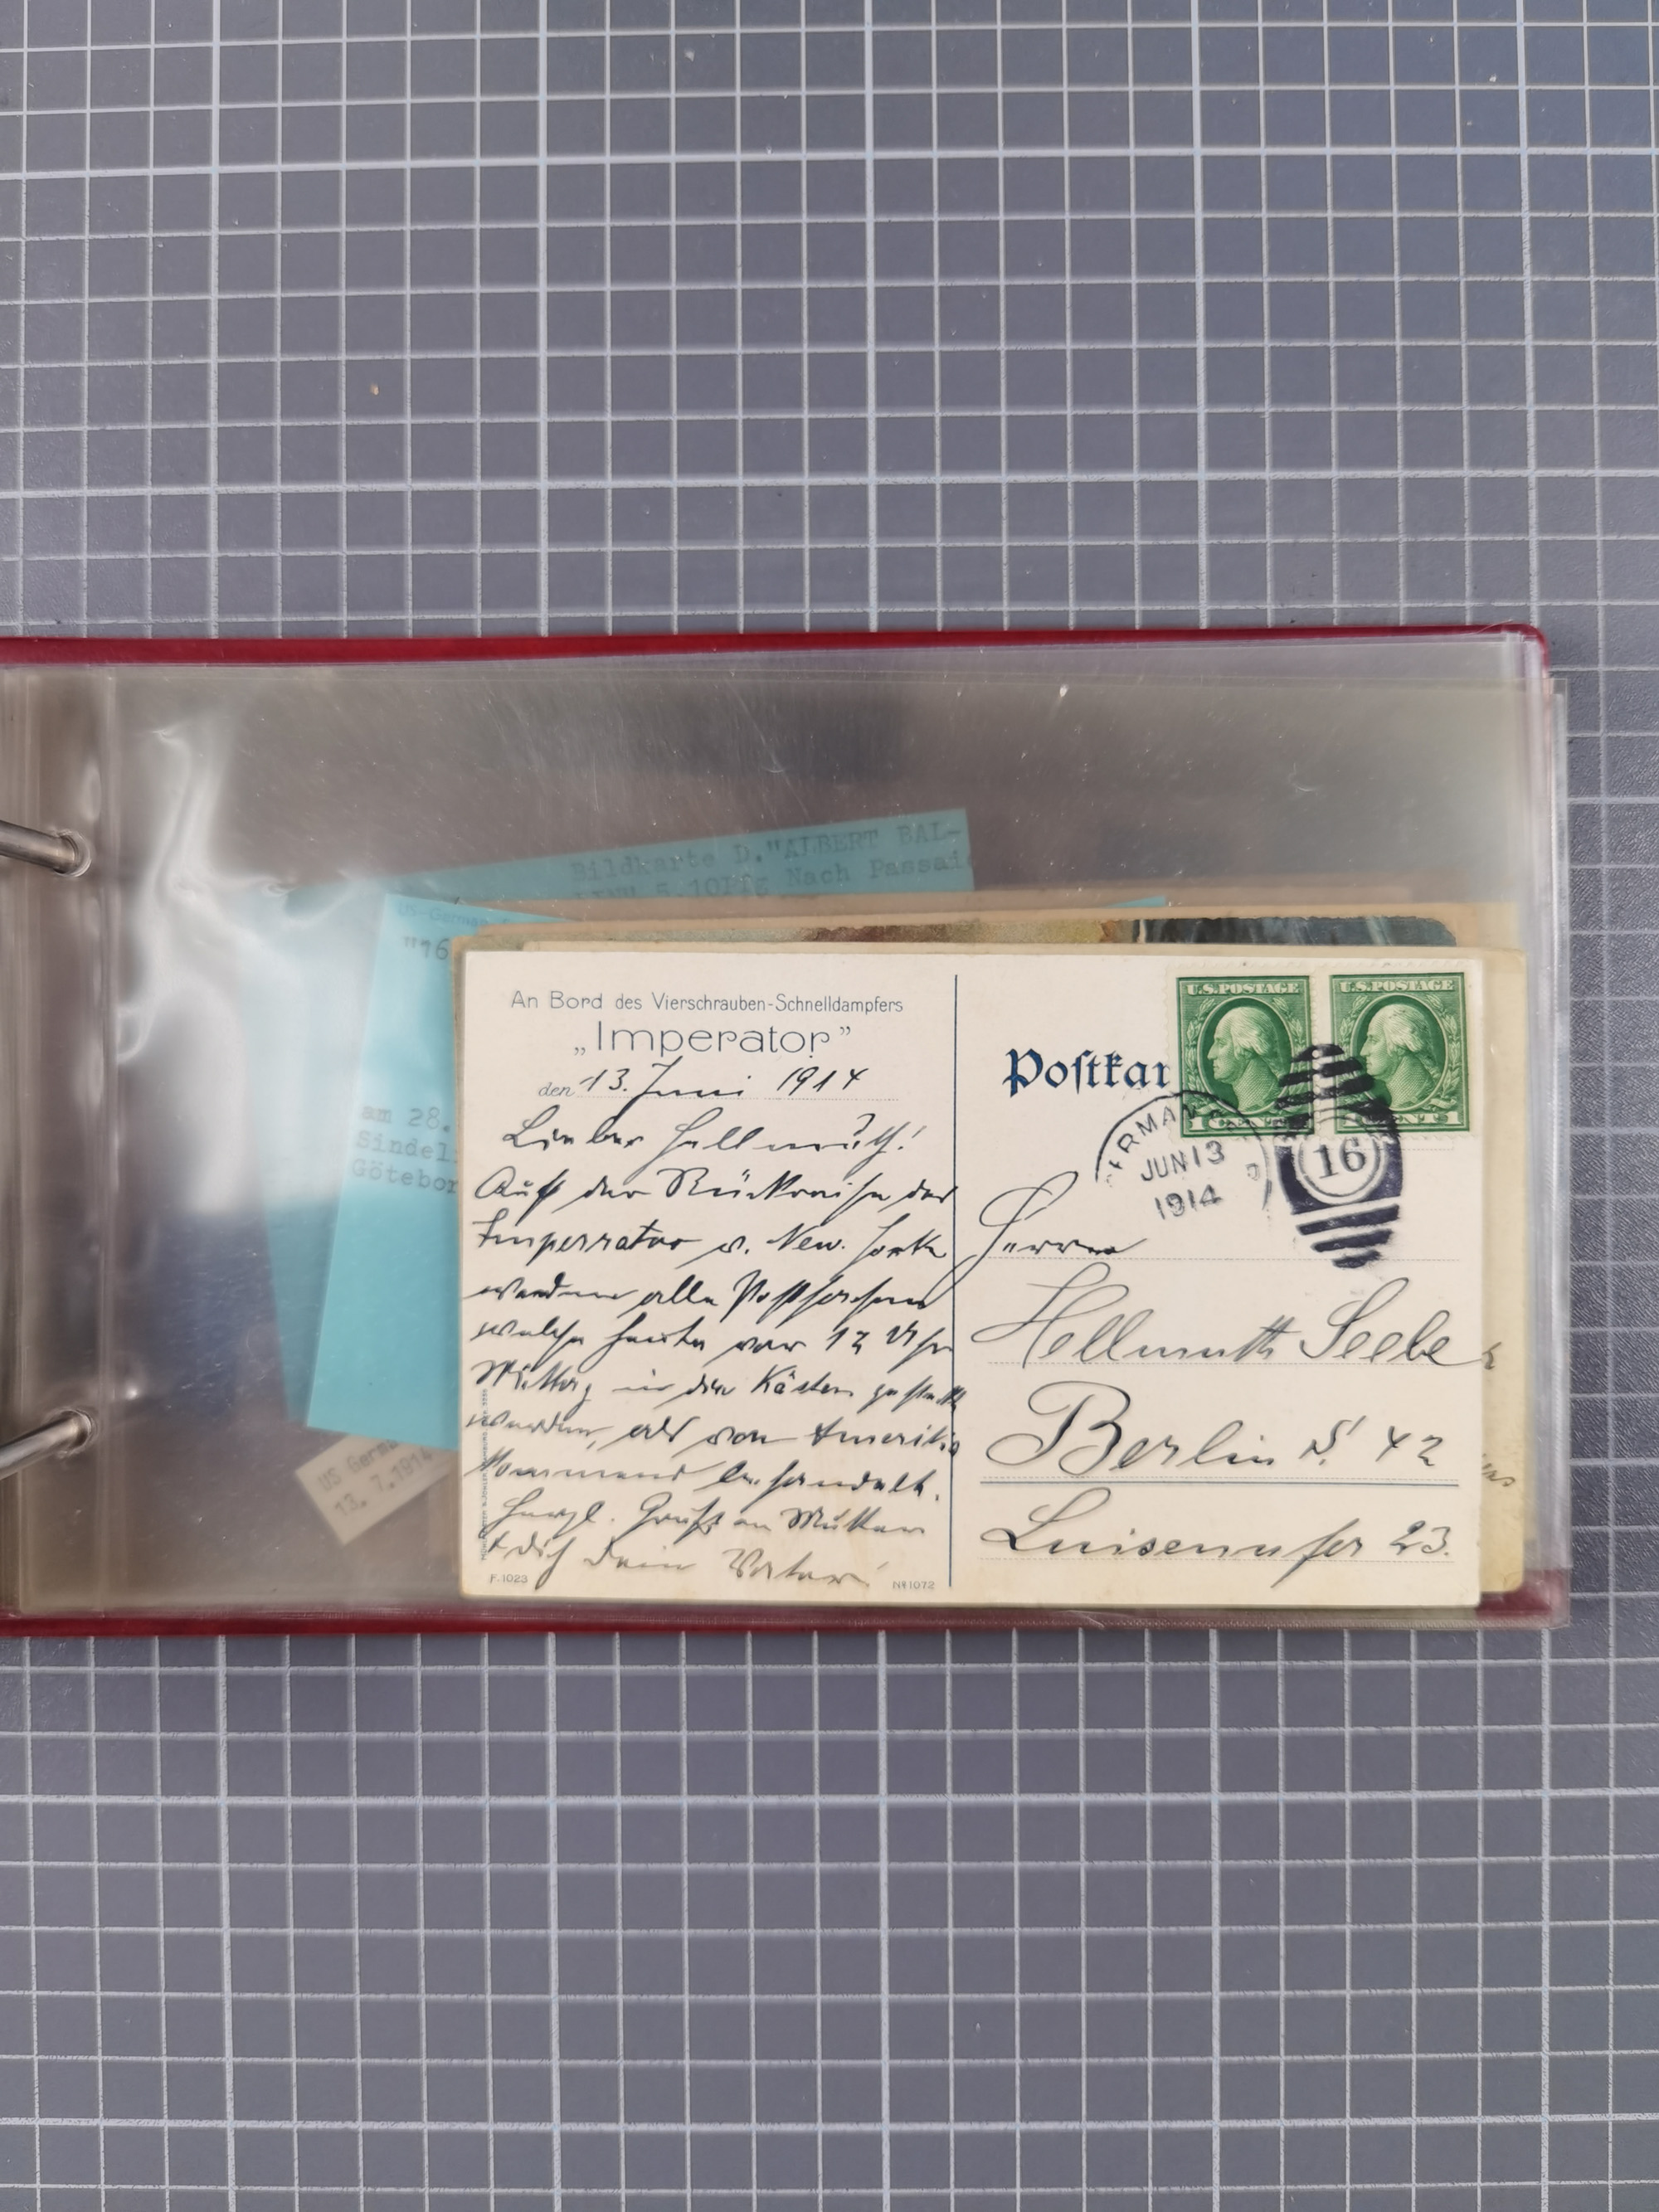 Bildkarte D."ALBERT BAL-
5.10Pfg Nach Passai
US-German
"16
am 28.
Sindel
Götebor
US Germa
13. 7.1914
An Bord des Vierschrauben-Schnelldampfers
„Imperator”
den 13. Juni 1914
Lieber Hellmuth!
Auf der Rückreise des
Imperrator v. New. York
werden alle Postsachen
welche heute vor 12 Uhr
Mittag in die Kästen gesteckt
werden, als von Amerika
kommend behandelt.
Herzl. Gruß an Mutter
+ dich dein Vater!
F. 1023
№ 1072
Postkar
U.S. POSTAGE
U.S. POSTAGE
1
1
JUN 13
1914
16
Herrn
Hellmuth Seeber
Berlin S. 42
Luisenufer 23.